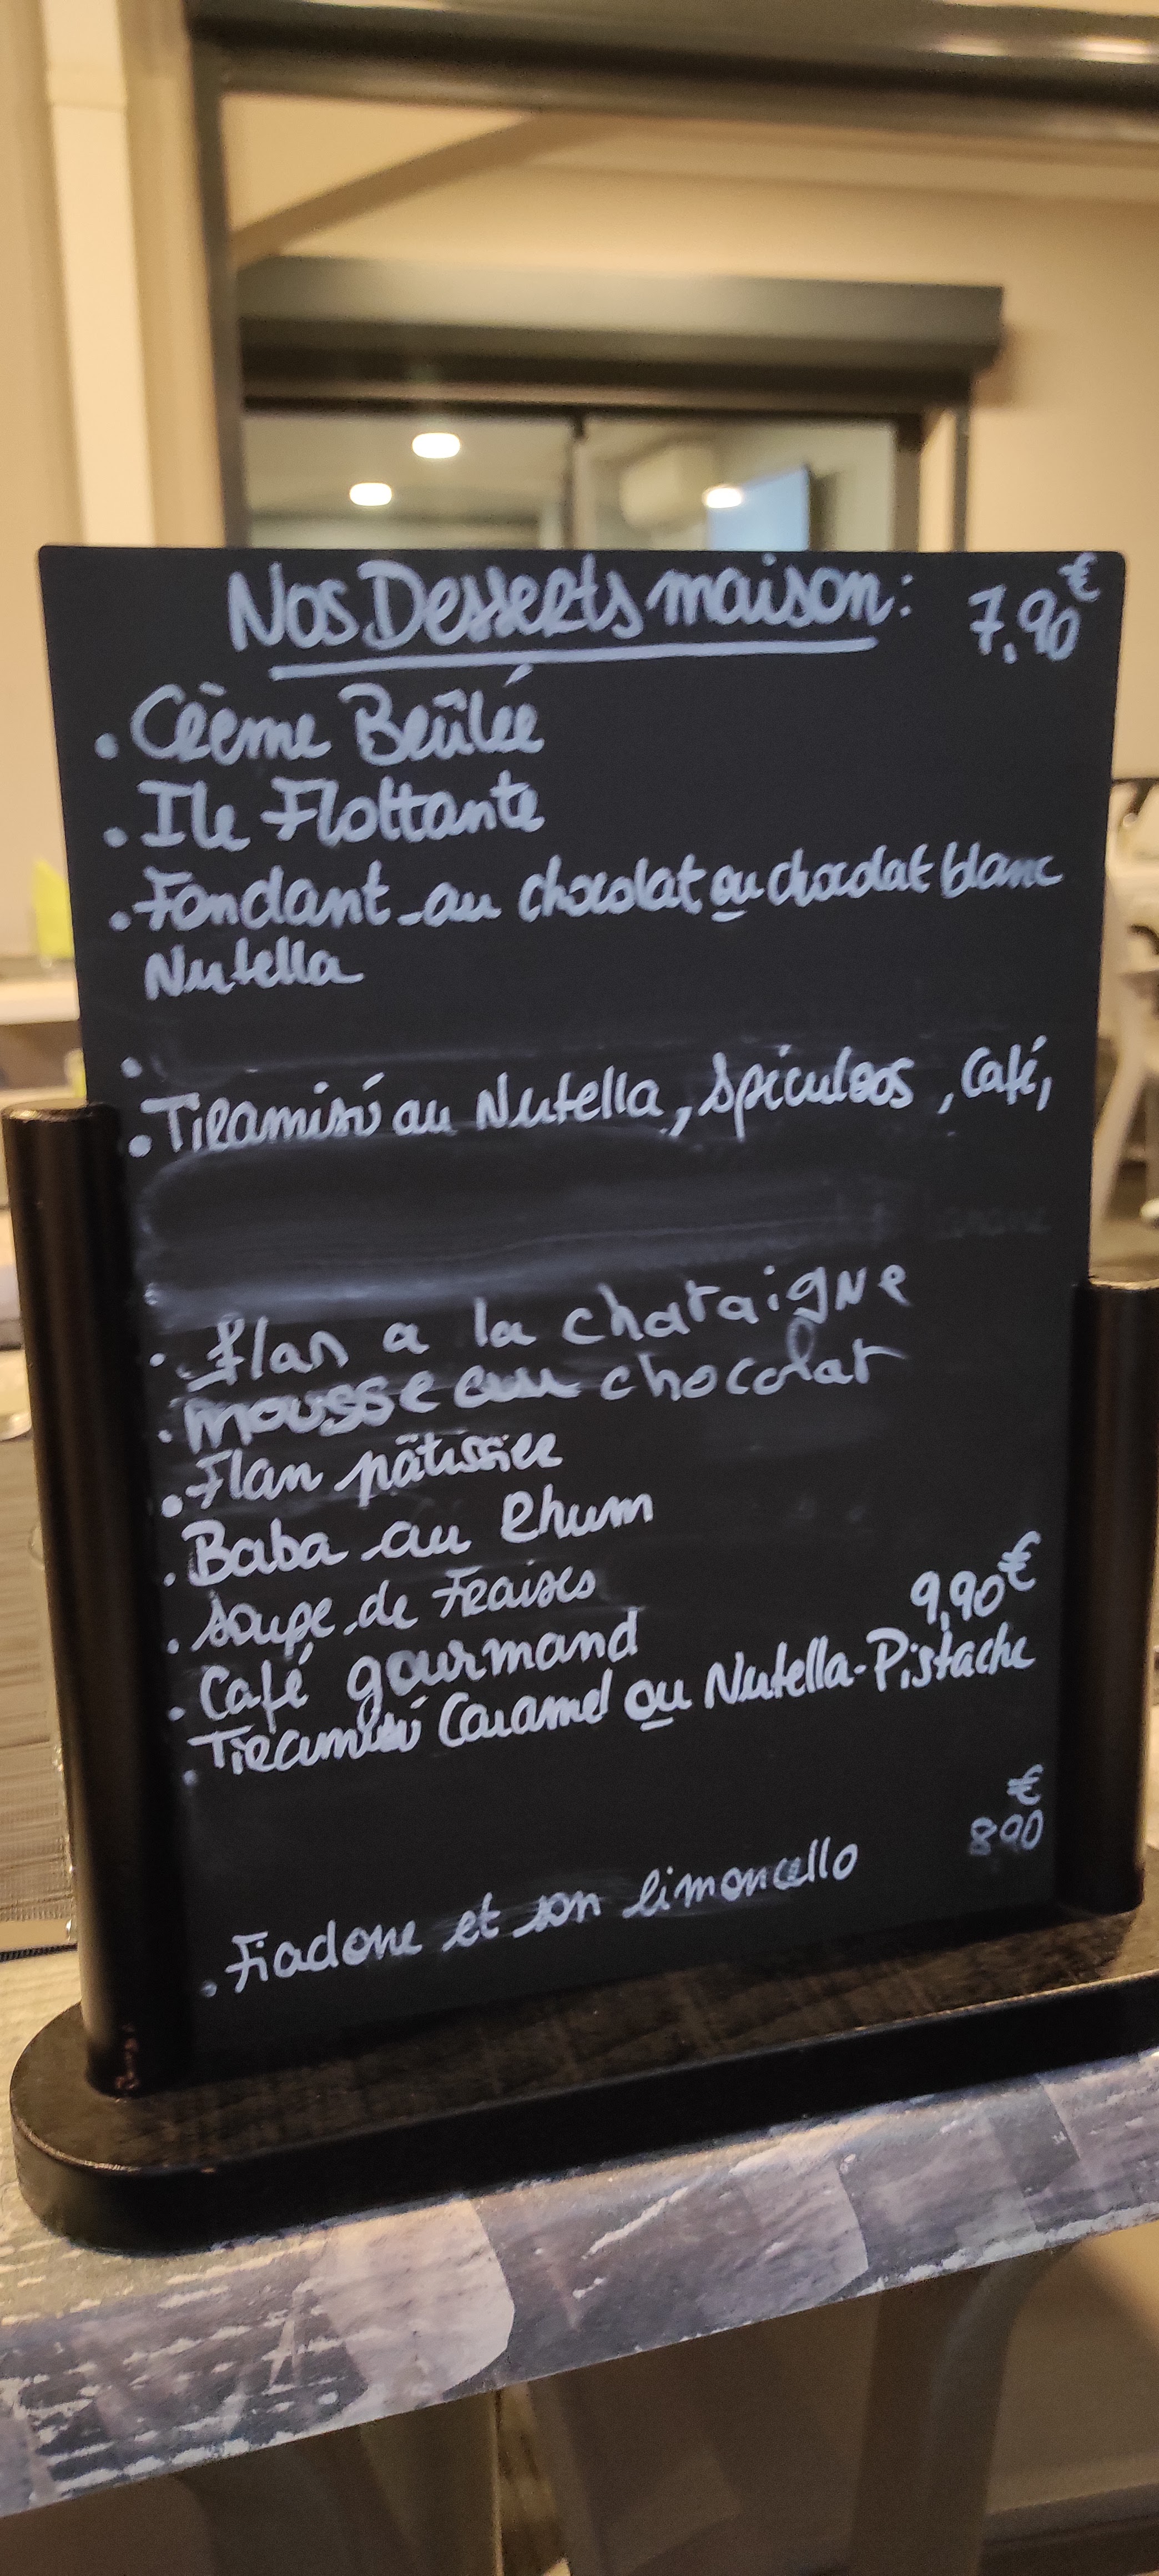 Nos Desserts maison : 7,90€
. Crème Brûlée
. Ile Flottante
. Fondant au chocolat ou chocolat blanc
Nutella
.
. Tiramisù au Nutella, Spéculoos, Café,
. flan a la chataigne
. mousse au chocolat
. Flan pâtissier
. Baba au Rhum
. Soupe de Fraises
. Café gourmand 9,90€
. Tiramisù Caramel ou Nutella-Pistache
. Fiadone et son limoncello 8,90€